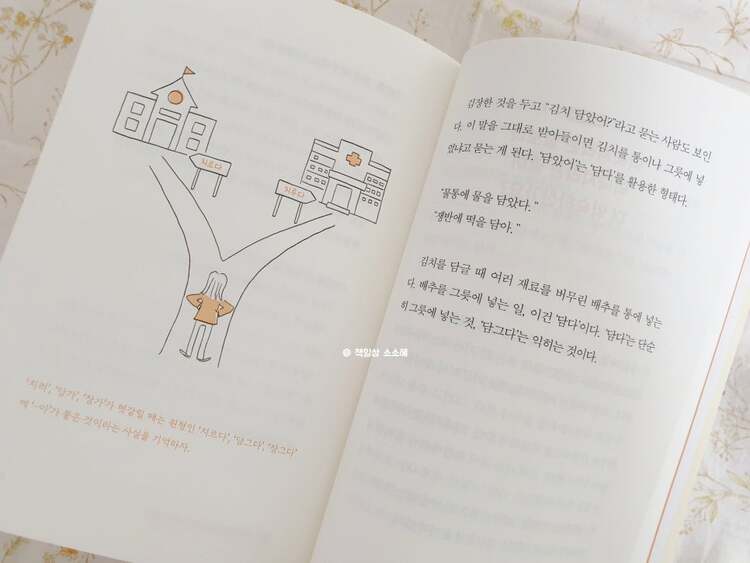 치르다
치유다
'치러', '담가', '잠가'가 헷갈릴 때는 원형인 '치르다', '담그다', '잠그다'
에 '-아'가 붙은 것이라는 사실을 기억하자.
@ 책일상 소소혜
김장한 것을 두고 "김치 담았어?"라고 묻는 사람도 보인
다. 이 말을 그대로 받아들이면 김치를 통이나 그릇에 넣
었냐고 묻는 게 된다. '담았어'는 '담다'를 활용한 형태다.
"물통에 물을 담았다."
"쟁반에 떡을 담아."
김치를 담글 때 여러 재료를 버무린 배추를 통에 넣는
다. 배추를 그릇에 넣는 일, 이건 '담다'이다. '담다'는 단순
히 그릇에 넣는 것, '담그다'는 익히는 것이다.